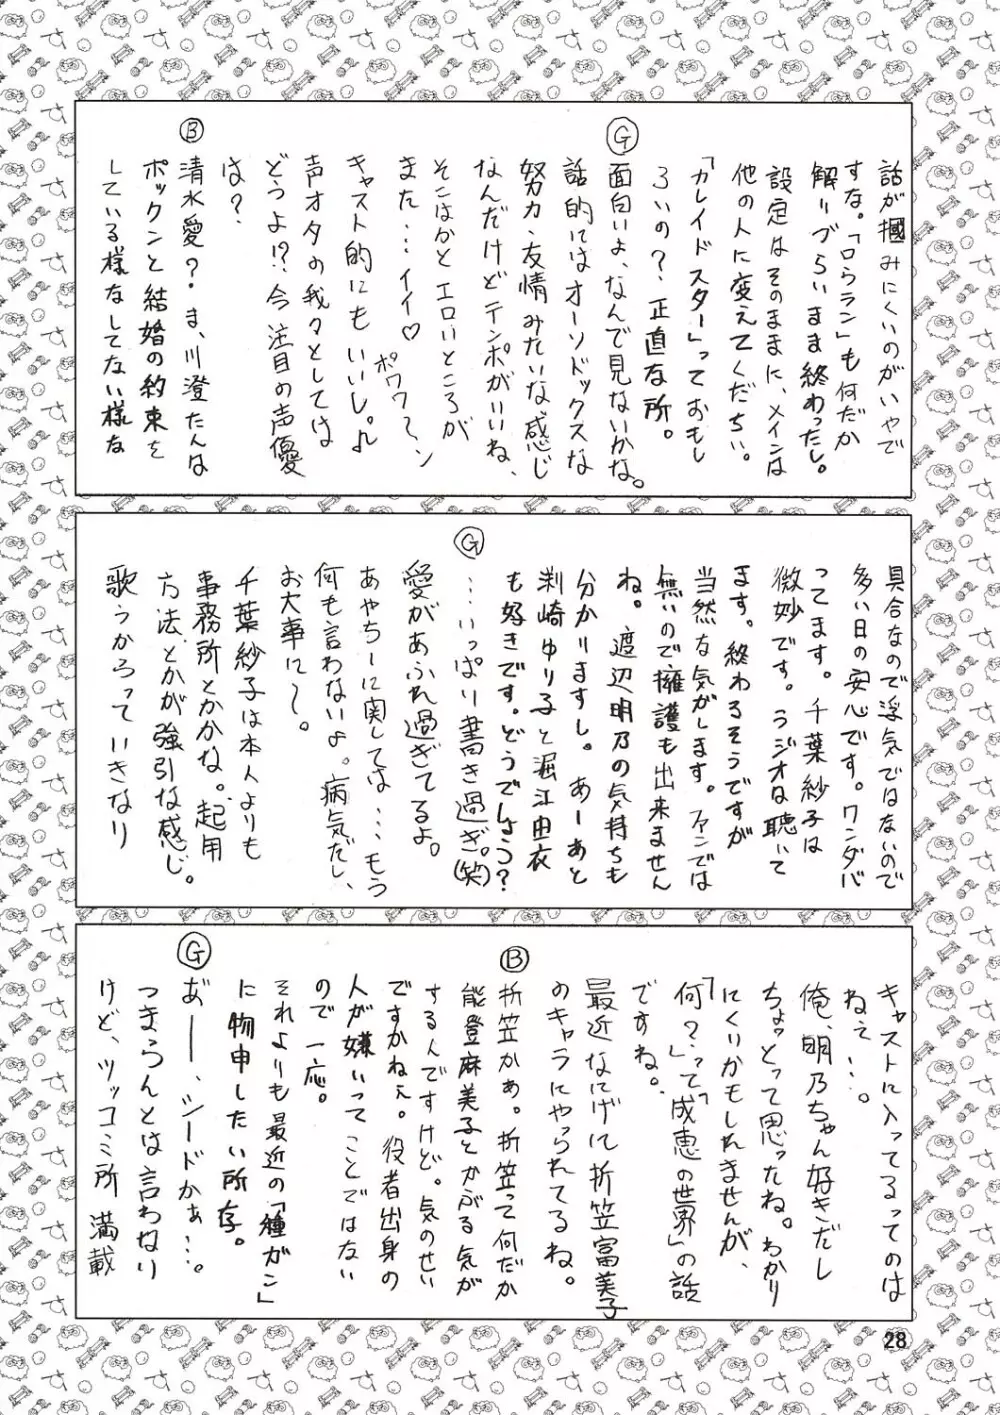 話が掴みにくいのがいやで
すな。「ロらラン」も何だか
解りづらいまま終わったし。
設定はそのままに、メインは
他の人に変えてくだちい。
「カレイドスター」っておもし
ろいの？正直な所。
Ⓖ 面白いよ、なんで見ないかな。
話的にはオーソドックスな
努力・友情みたいな感じ
なんだけどテンポがいいね、
そこはかとエロいところが
また…イイ♡ポワワ〜ン
キャスト的にもいいし。♪
声オタの我々としては
どうよ!?今注目の声優
は？
Ⓑ 清水愛？ま、川澄たんは
ボックンと結婚の約束を
している様なしてない様な
具合なので浮気ではないので
多い日の安心です。ワンダバ
ってます。千葉紗子は
微妙です。ラジオは聴いて
ます。終わるそうですが
当然な気がします。ファンでは
無いので擁護も出来ません
ね。渡辺明乃の気持ちも
分かりますし。あーあと
剌崎ゆり子と堀江由衣
も好きです。どうでしょう？
Ⓖ …いっぱり書き過ぎ。(笑)
愛があふれ過ぎてるよ。
あやちーに関しては…もう
何も言わないよ。病気だし、
お大事に〜。
千葉紗子は本人よりも
事務所とかかな。起用
方法とかが強引な感じ。
歌うからっていきなり
キャストに入ってるってのは
ねぇ…。
俺、明乃ちゃん好きだし
ちょっとって思ったね。わかり
にくいかもしれませんが、
「何？」って「成恵の世界」の話
ですね。
最近なにげに折笠富美子
のキャラにやられてるね。
Ⓑ 折笠かぁ。折笠って何だか
能登麻美子とかぶる気が
するんですけど。気のせい
ですかねぇ。役者出身の
人が嫌いってことではない
ので一応。
それよりも最近の「種ガン」
に物申したい所存。
Ⓖ お゛ーー、シードかぁ…。
つまらんとは言わない
けど、ツッコミ所満載
28